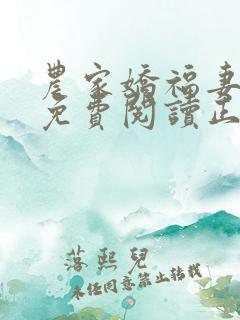 農家嬌福妻
免費閱讀正
落熙兒
未經同意禁止轉載